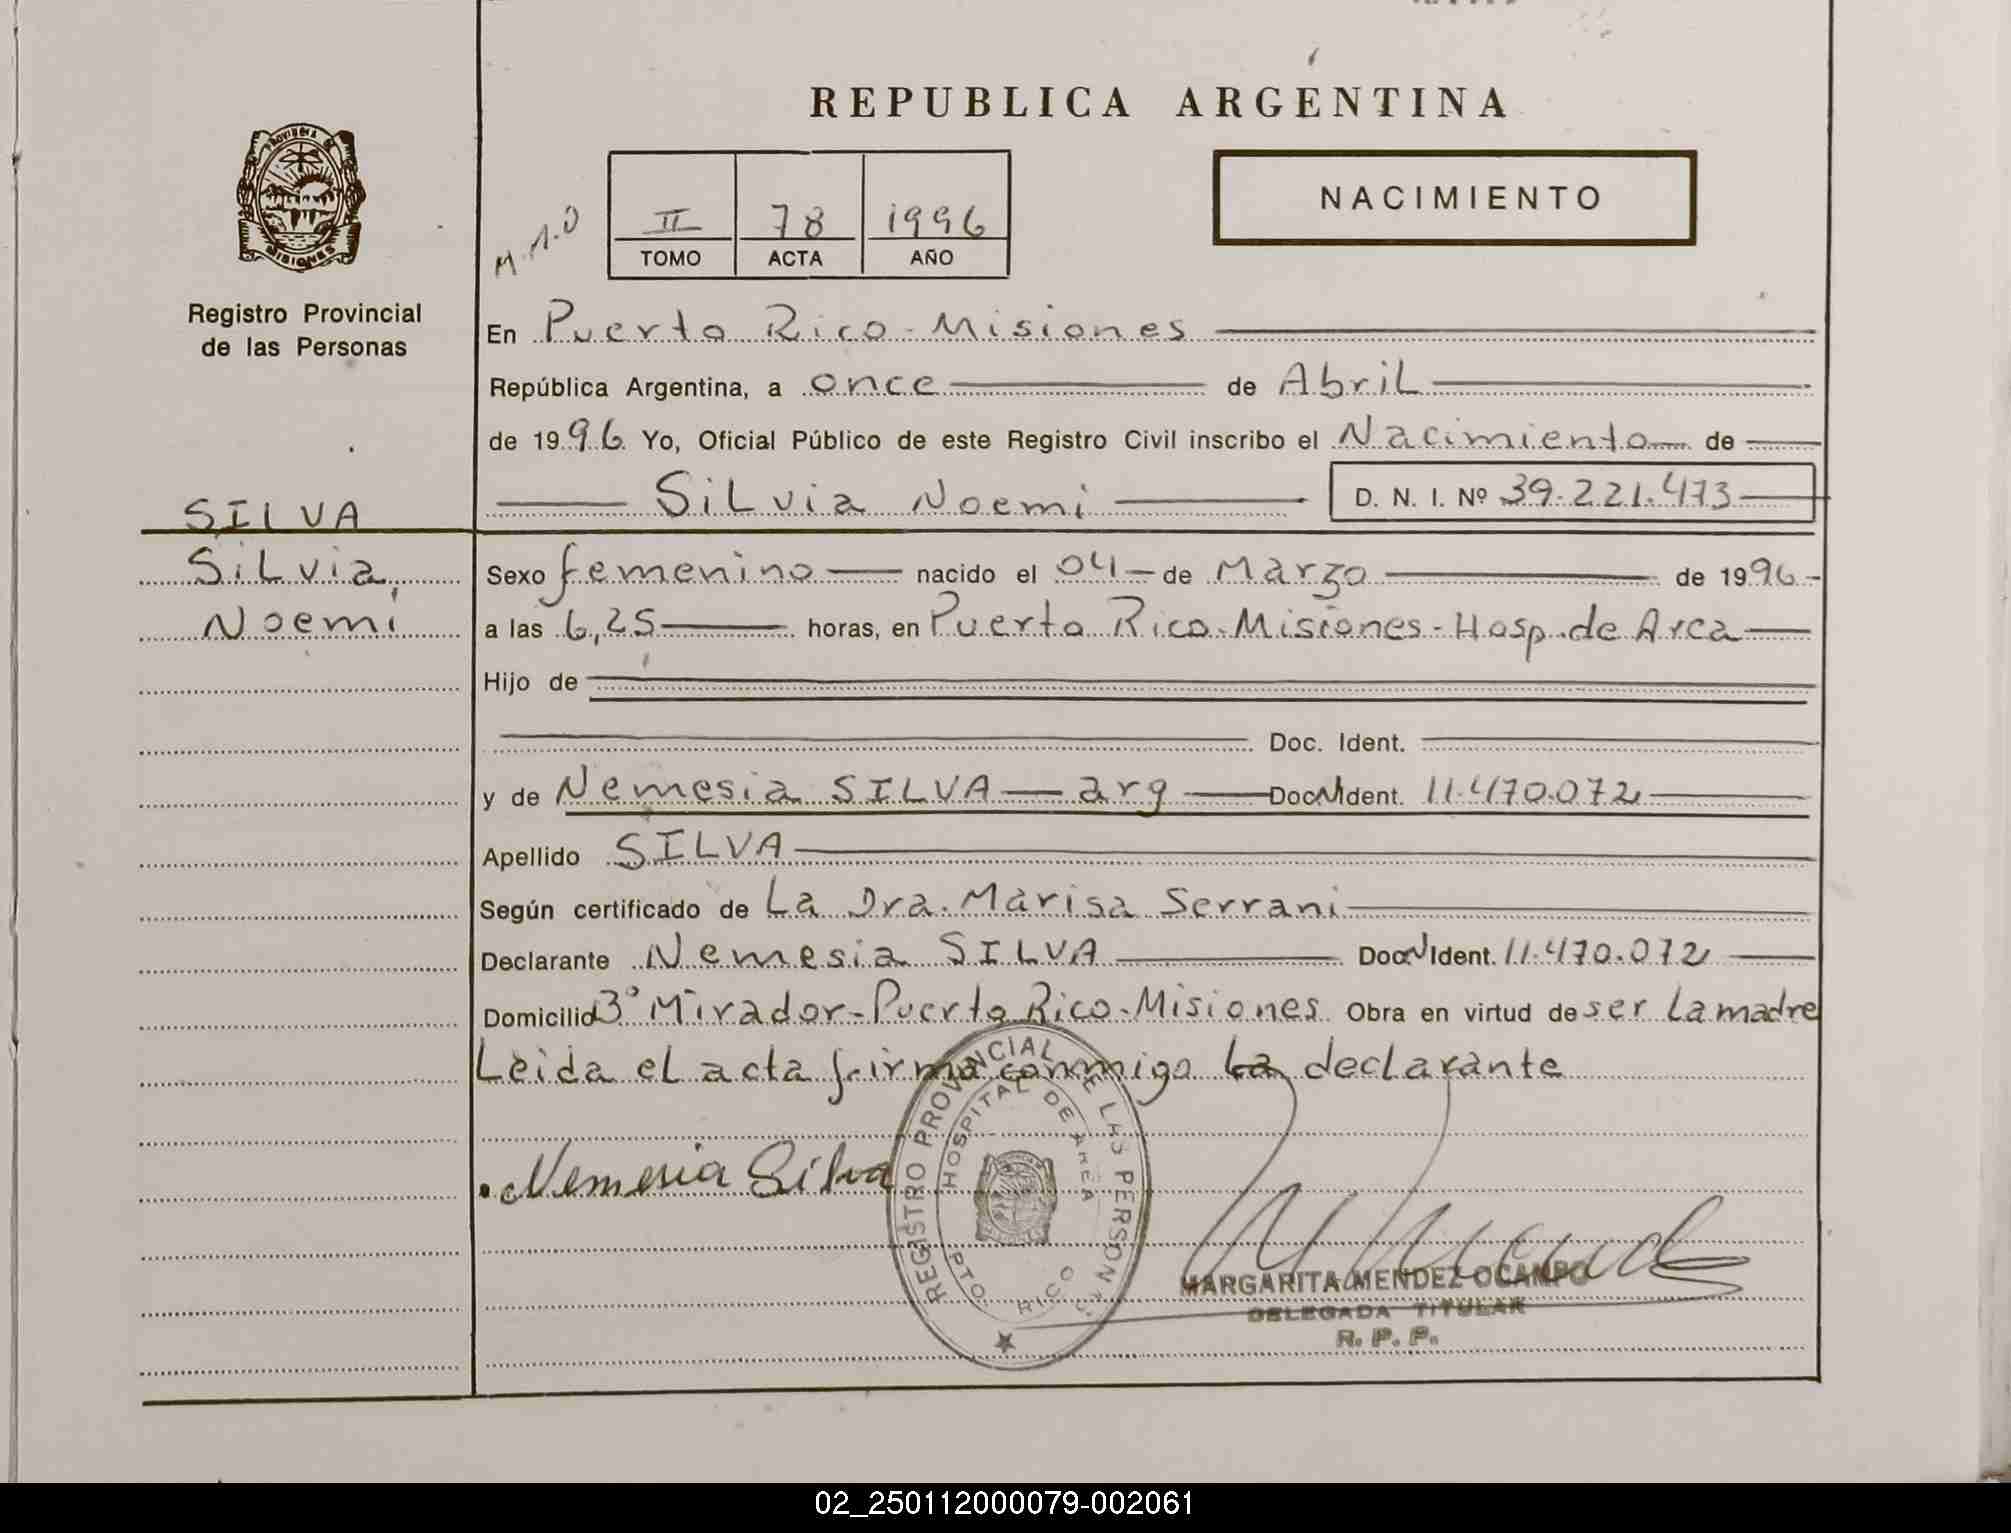 REPUBLICA ARGENTINA
PROVINCIA DE
MISIONES
NACIMIENTO
M.M.O
II 78 1996
TOMO ACTA AÑO
Registro Provincial
de las Personas
En Puerto Rico-Misiones
República Argentina, a once de Abril
de 1996 Yo, Oficial Público de este Registro Civil inscribo el Nacimiento de
Silvia Noemi D. N. I. Nº 39.221.473
SILVA
Silvia
Noemi
Sexo femenino nacido el 04 de Marzo de 1996
a las 6,25 horas, en Puerto Rico-Misiones-Hosp. de Area
Hijo de
Doc. Ident.
y de Nemesia SILVA arg Doc. Ident. 11.470.072
Apellido SILVA
Según certificado de La Dra. Marisa Serrani
Declarante Nemesia SILVA Doc. Ident. 11.470.072
Domicilio 3º Mirador-Puerto Rico-Misiones Obra en virtud de ser la madre
Leida el acta firma conmigo la declarante
Nemesia Silva
REGISTRO PROVINCIAL DE LAS PERSONAS
HOSPITAL DE AREA
PTO. RICO
MARGARITA MENDEZ OCAMPO
DELEGADA TITULAR
R. P. P.
02_250112000079-002061